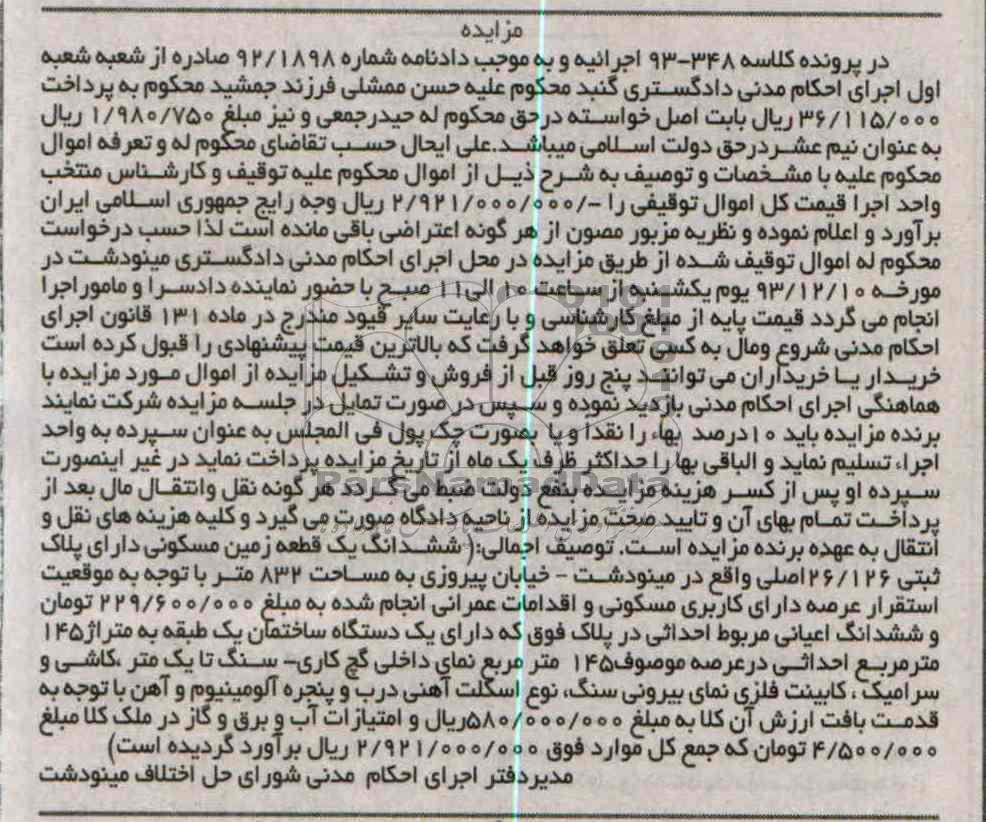 مزایده
در پرونده کلاسه ۳۴۸-۹۳ اجرائیه و به موجب دادنامه شماره ۹۲/۱۸۹۸ صادره از شعبه شعبه
اول اجرای احکام مدنی دادگستری گنبد محکوم علیه حسن ممشلی فرزند جمشید محکوم به پرداخت
۳۶/۱۱۵/۰۰۰ ریال بابت اصل خواسته درحق محکوم له حیدرجمعی و نیز مبلغ ۱/۹۸۰/۷۵۰ ریال
به عنوان نیم عشردرحق دولت اسلامی میباشد.علی ایحال حسب تقاضای محکوم له و تعرفه اموال
محکوم علیه با مشخصات و توصیف به شرح ذیل از اموال محکوم علیه توقیف و کارشناس منتخب
واحد اجرا قیمت کل اموال توقیفی را -/۲/۹۲۱/۰۰۰/۰۰۰ ریال وجه رایج جمهوری اسلامی ایران
برآورد و اعلام نموده و نظریه مزبور مصون از هر گونه اعتراضی باقی مانده است لذا حسب درخواست
محکوم له اموال توقیف شده از طریق مزایده در محل اجرای احکام مدنی دادگستری مینودشت در
مورخه ۹۳/۱۲/۱۰ یوم یکشنبه از ساعت ۱۰ الی۱۱ صبح با حضور نماینده دادسرا و ماموراجرا
انجام می گردد قیمت پایه از مبلغ کارشناسی و با رعایت سایر قیود مندرج در ماده ۱۳۱ قانون اجرای
احکام مدنی شروع ومال به کسی تعلق خواهد گرفت که بالاترین قیمت پیشنهادی را قبول کرده است
خریدار یا خریداران می توانند پنج روز قبل از فروش و تشکیل مزایده از اموال مورد مزایده با
هماهنگی اجرای احکام مدنی بازدید نموده و سپس در صورت تمایل در جلسه مزایده شرکت نمایند
برنده مزایده باید ۱۰درصد بهاء را نقدا و یا بصورت چک پول فی المجلس به عنوان سپرده به واحد
اجراء تسلیم نماید و الباقی بها را حداکثر ظرف یک ماه از تاریخ مزایده پرداخت نماید در غیر اینصورت
سپرده او پس از کسر هزینه مزایده بنفع دولت ضبط می گردد هر گونه نقل وانتقال مال بعد از
پرداخت تمام بهای آن و تایید صحت مزایده از ناحیه دادگاه صورت می گیرد و کلیه هزینه های نقل و
انتقال به عهده برنده مزایده است. توصیف اجمالی:( ششدانگ یک قطعه زمین مسکونی دارای پلاک
ثبتی ۲۶/۱۲۶اصلی واقع در مینودشت - خیابان پیروزی به مساحت ۸۳۲ متر با توجه به موقعیت
استقرار عرصه دارای کاربری مسکونی و اقدامات عمرانی انجام شده به مبلغ ۲۲۹/۶۰۰/۰۰۰ تومان
و ششدانگ اعیانی مربوط احداثی در پلاک فوق که دارای یک دستگاه ساختمان یک طبقه به متراژ۱۴۵
مترمربع احداثی درعرصه موصوف۱۴۵ متر مربع نمای داخلی گچ کاری- سنگ تا یک متر ،کاشی و
سرامیک ، کابینت فلزی نمای بیرونی سنگ، نوع اسکلت آهنی درب و پنجره آلومینیوم و آهن با توجه به
قدمت بافت ارزش آن کلا به مبلغ ۵۸۰/۰۰۰/۰۰۰ریال و امتیازات آب و برق و گاز در ملک کلا مبلغ
۴/۵۰۰/۰۰۰ تومان که جمع کل موارد فوق ۲/۹۲۱/۰۰۰/۰۰۰ ریال برآورد گردیده است)
مدیردفتر اجرای احکام مدنی شورای حل اختلاف مینودشت
ParsNamadData